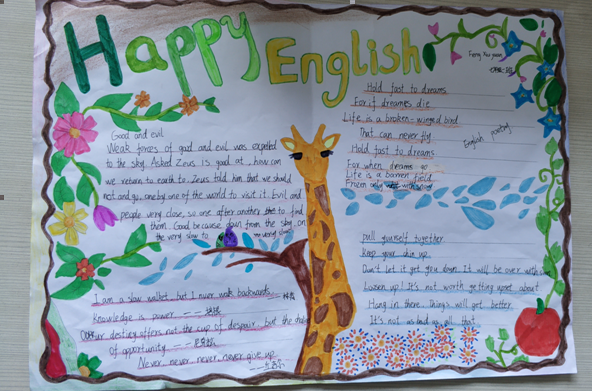 Happy
English
Feng Xu yuan
English poetry
Hold fast to dreams
For if dreames die
Life is a broken-winged bird
That can never fly
Hold fast to dreams.
For when dreams go
Life is a barren field
Frozen only with snow
Good and evil
Weak forces of god and evil was expelled
to the sky. Asked Zeus is good at, how can
we return to earth to. Zeus told him that we should
not and go, one by one of the world to visit it. Evil and
people very close, so one after another to find
them. Good because down from the sky, on
the very slow to
very slow.
I am a slow walker, but I never walk backwards.
Knowledge is power
destiny offers not the cup of despair, but the
Of opportunity
Never, never, never, never give up
pull yourself together
Keep your chin up.
Don't let it get you down. It will be over with
Loosen up! It's not worth getting upset about
Hang in there. Things will get better
It's not as bad as all that.